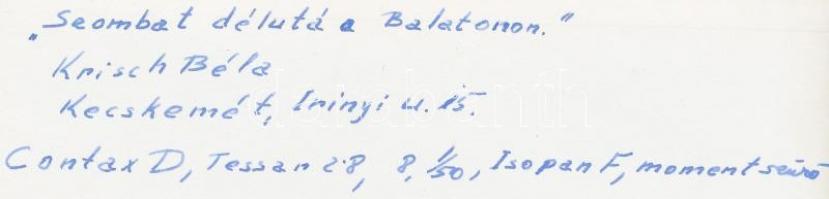 „Szombat délutá a Balatonon.”
Krisch Béla
Kecskemét, Irinyi u. 15.
Contax D, Tessar 2.8, 8, 1/50, Isopan F, momentszűrő